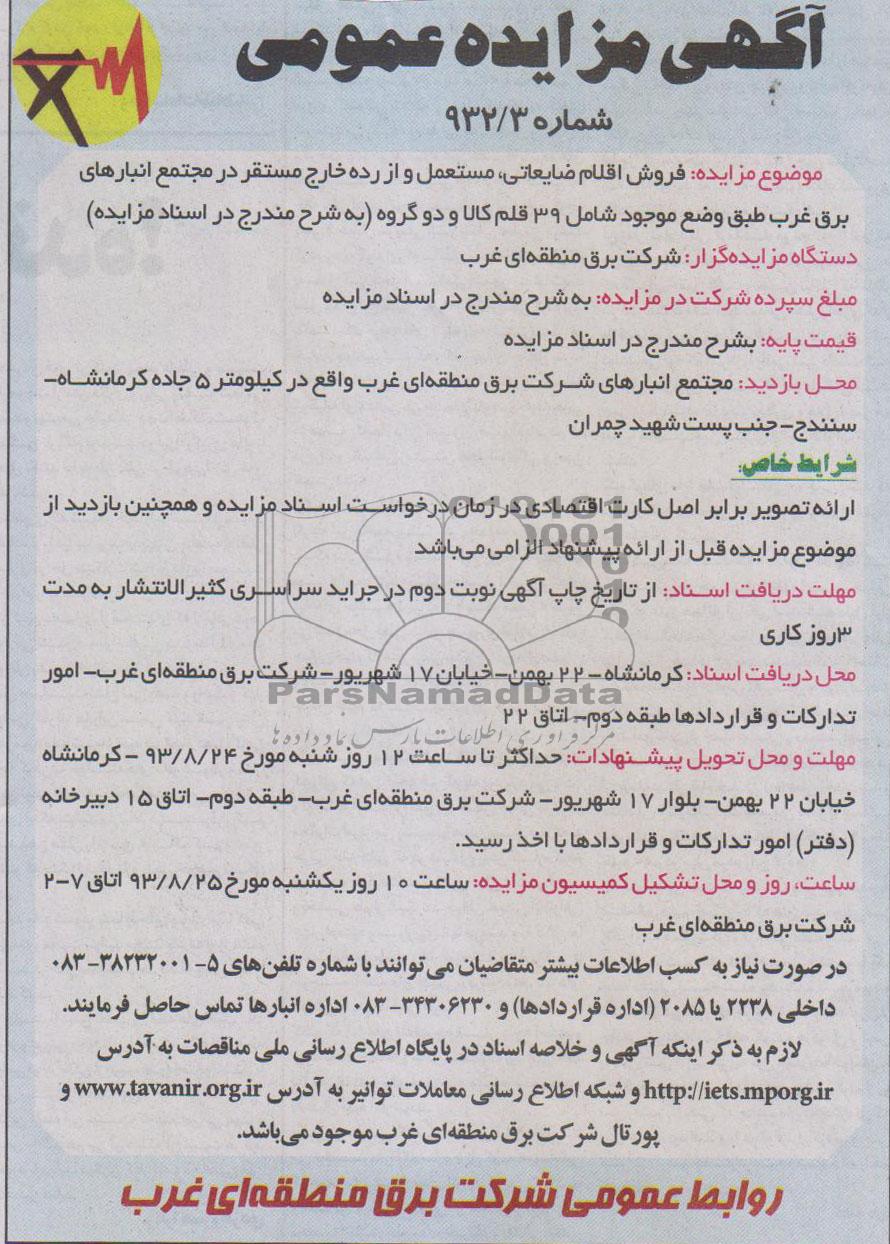 آگهی مزایده عمومی
شماره ۹۳۲/۳
موضوع مزایده: فروش اقلام ضایعاتی، مستعمل و از رده خارج مستقر در مجتمع انبارهای
برق غرب طبق وضع موجود شامل ۳۹ قلم کالا و دو گروه (به شرح مندرج در اسناد مزایده)
دستگاه مزایده‌گزار: شرکت برق منطقه‌ای غرب
مبلغ سپرده شرکت در مزایده: به شرح مندرج در اسناد مزایده
قیمت پایه: بشرح مندرج در اسناد مزایده
محل بازدید: مجتمع انبارهای شرکت برق منطقه‌ای غرب واقع در کیلومتر ۵ جاده کرمانشاه-
سنندج- جنب پست شهید چمران
شرایط خاص:
ارائه تصویر برابر اصل کارت اقتصادی در زمان درخواست اسناد مزایده و همچنین بازدید از
موضوع مزایده قبل از ارائه پیشنهاد الزامی می‌باشد
مهلت دریافت اسناد: از تاریخ چاپ آگهی نوبت دوم در جراید سراسری کثیرالانتشار به مدت
۳روز کاری
محل دریافت اسناد: کرمانشاه - ۲۲ بهمن-خیابان ۱۷ شهریور- شرکت برق منطقه‌ای غرب- امور
تدارکات و قراردادها طبقه دوم- اتاق ۲۲
ParsNamadData
مرکز فرآوری اطلاعات پارس نماد داده‌ها
مهلت و محل تحویل پیشنهادات: حداکثر تا ساعت ۱۲ روز شنبه مورخ ۹۳/۸/۲۴ - کرمانشاه
خیابان ۲۲ بهمن- بلوار ۱۷ شهریور- شرکت برق منطقه‌ای غرب- طبقه دوم- اتاق ۱۵ دبیرخانه
(دفتر) امور تدارکات و قراردادها با اخذ رسید.
ساعت، روز و محل تشکیل کمیسیون مزایده: ساعت ۱۰ روز یکشنبه مورخ ۹۳/۸/۲۵ اتاق ۷-۲
شرکت برق منطقه‌ای غرب
در صورت نیاز به کسب اطلاعات بیشتر متقاضیان می‌توانند با شماره تلفن‌های ۵-۳۸۲۳۲۰۰۱-۰۸۳
داخلی ۲۲۳۸ یا ۲۰۸۵ (اداره قراردادها) و ۳۴۳۰۶۲۳۰-۰۸۳ اداره انبارها تماس حاصل فرمایند.
لازم به ذکر اینکه آگهی و خلاصه اسناد در پایگاه اطلاع رسانی ملی مناقصات به آدرس
http://iets.mporg.ir و شبکه اطلاع رسانی معاملات توانیر به آدرس www.tavanir.org.ir و
پورتال شرکت برق منطقه‌ای غرب موجود می‌باشد.
روابط عمومی شرکت برق منطقه‌ای غرب